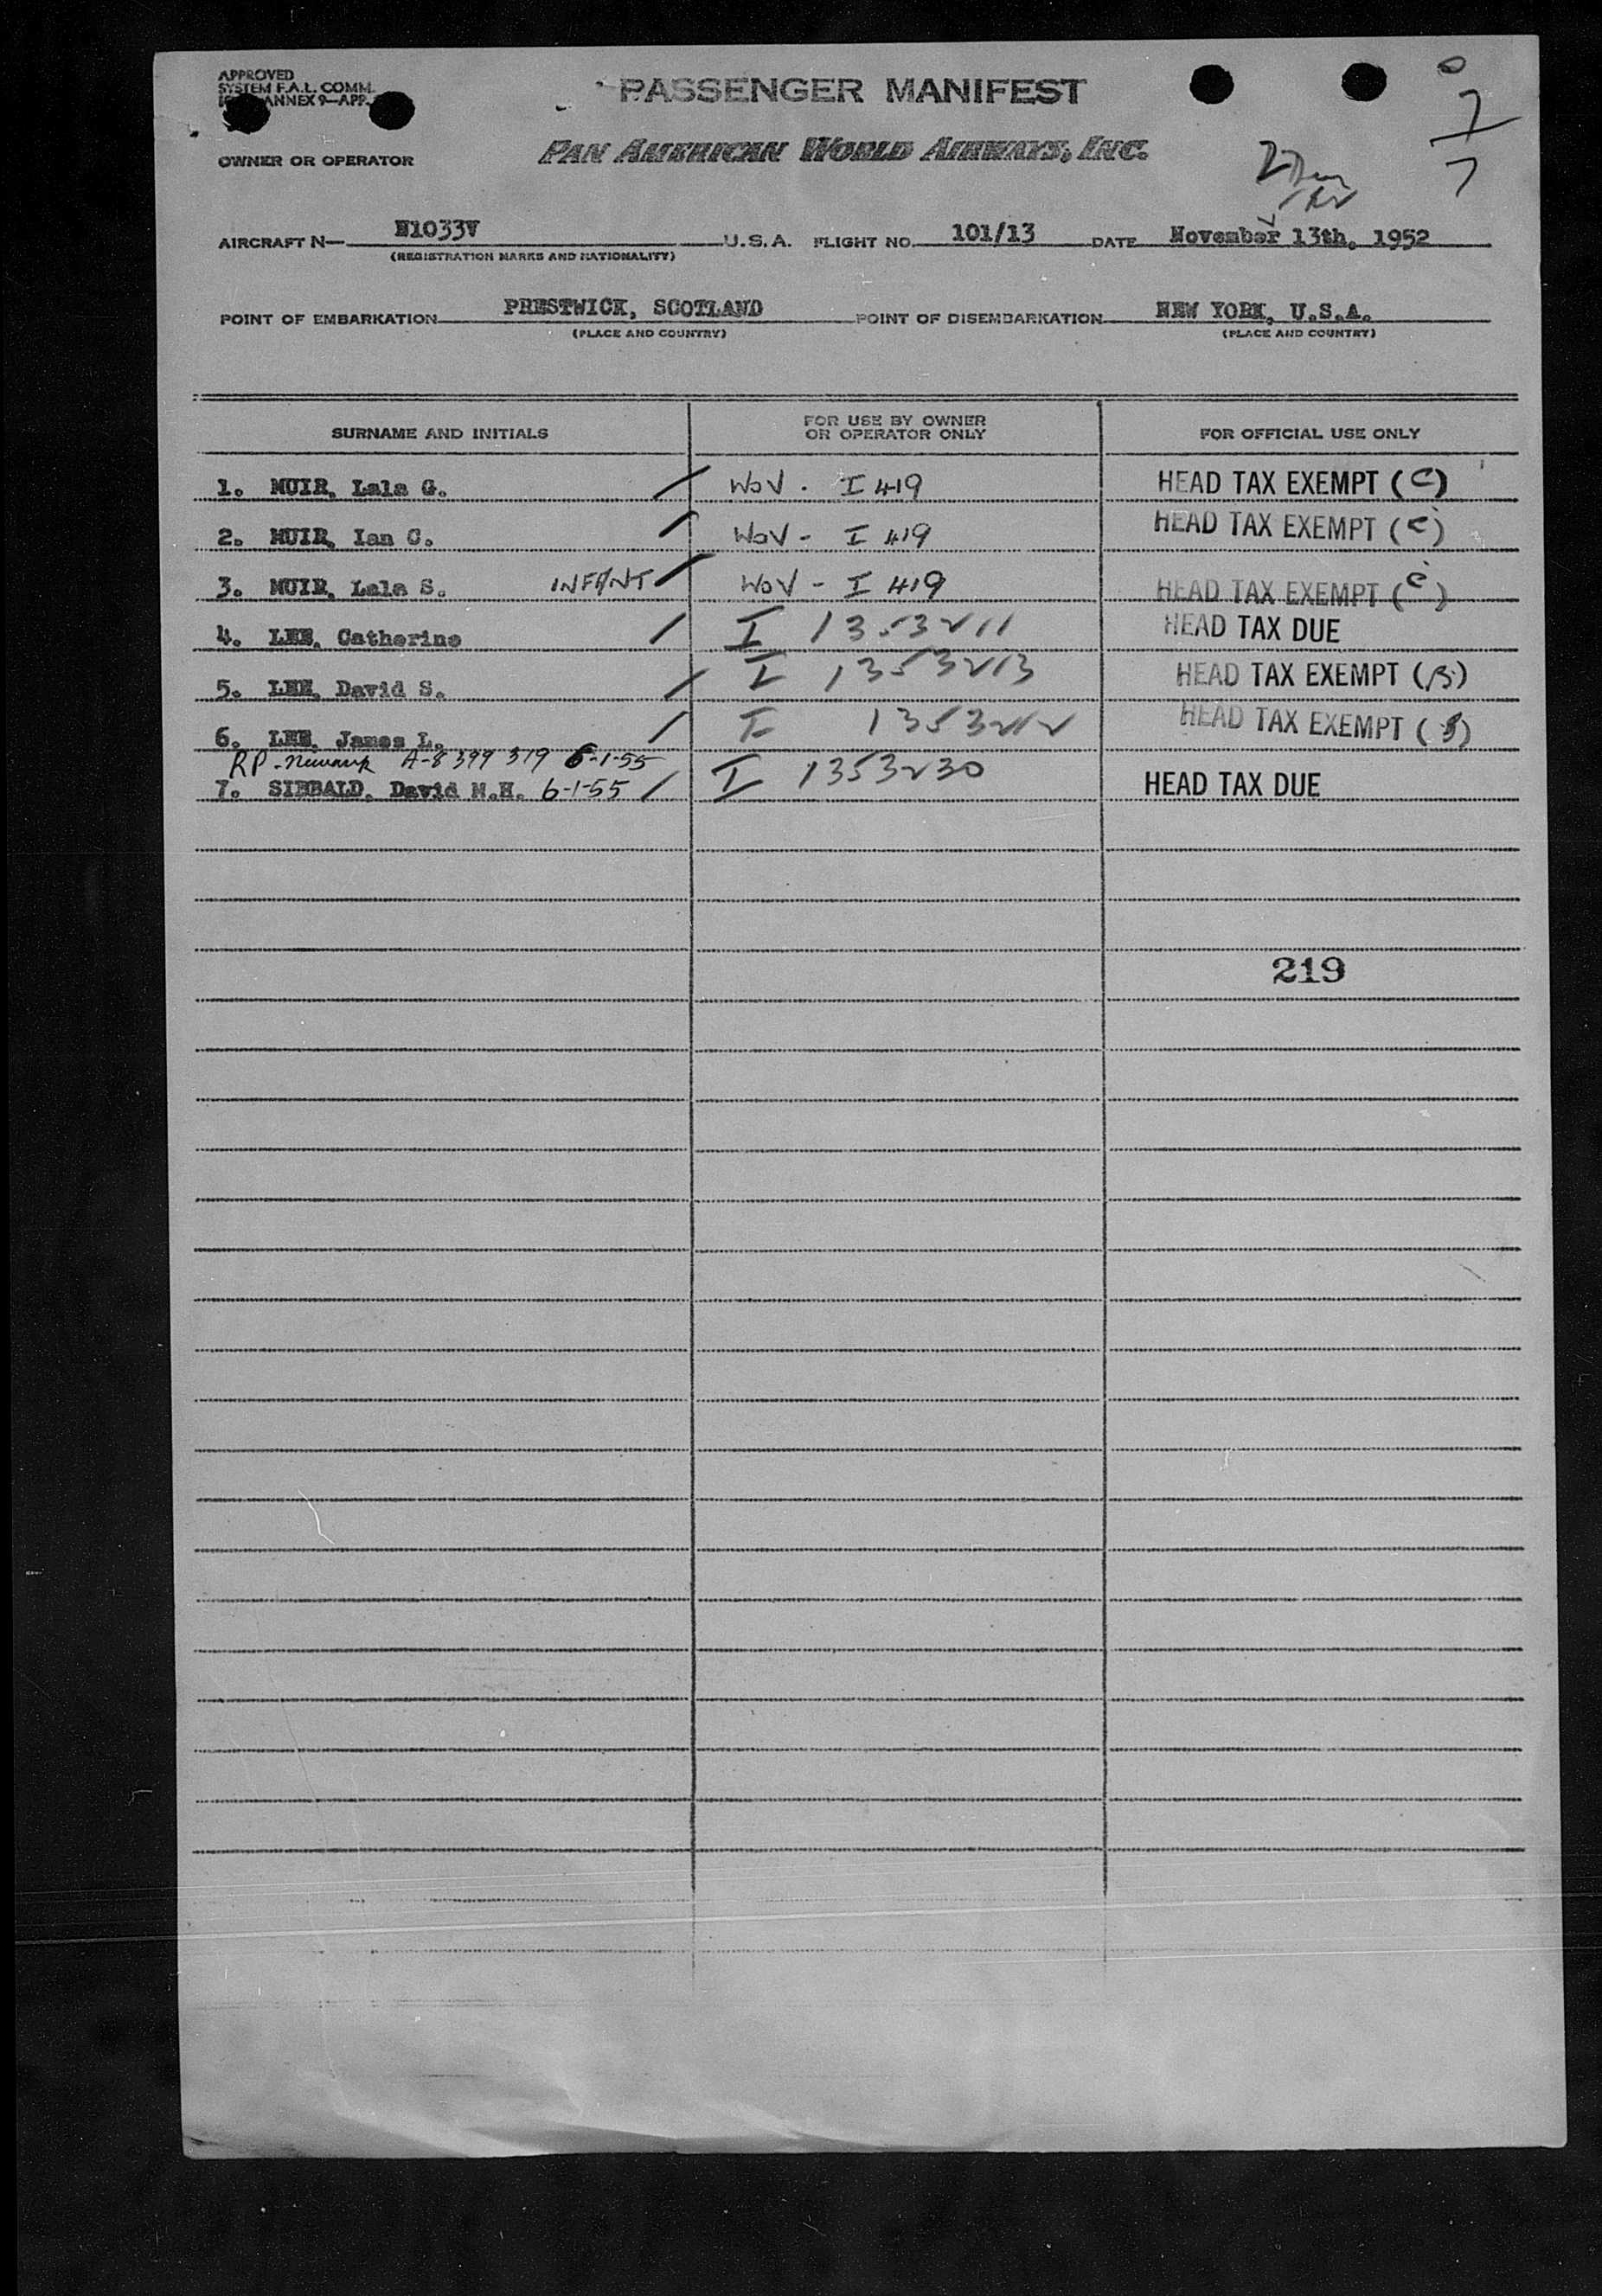 APPROVED
SYSTEM F.A.L. COMM.
ANNEX 9—APP.
PASSENGER MANIFEST
0
7
7
OWNER OR OPERATOR PAN AMERICAN WORLD AIRWAYS, INC.
AIRCRAFT N— N1033V U.S.A. FLIGHT NO. 101/13 DATE November 13th, 1952
(REGISTRATION MARKS AND NATIONALITY)
POINT OF EMBARKATION PRESTWICK, SCOTLAND POINT OF DISEMBARKATION NEW YORK, U.S.A.
(PLACE AND COUNTRY) (PLACE AND COUNTRY)
SURNAME AND INITIALS FOR USE BY OWNER OR OPERATOR ONLY FOR OFFICIAL USE ONLY
1. MUIR, Lala G. / WOV - I 419 HEAD TAX EXEMPT (C)
2. MUIR, Ian C. / WOV - I 419 HEAD TAX EXEMPT (C)
3. MUIR, Lala S. INFANT / WOV - I 419 HEAD TAX EXEMPT (C)
4. LEE, Catherine / I 1353211 HEAD TAX DUE
5. LEE, David S. / I 1353213 HEAD TAX EXEMPT (B)
6. LEE, James L. / I 1353212 HEAD TAX EXEMPT (B)
RP - Newark A-8 399 319 6-1-55
7. SIBBALD, David M.H. 6-1-55 / I 1353230 HEAD TAX DUE
219